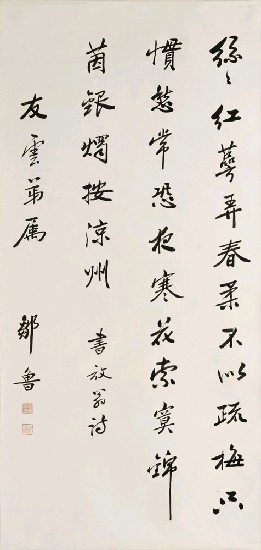 絲〻紅萼弄春柔不似疏梅只
慣愁常恐夜寒花索寞錦
茵銀燭按涼州 書放翁詩
友雲弟屬 鄒魯